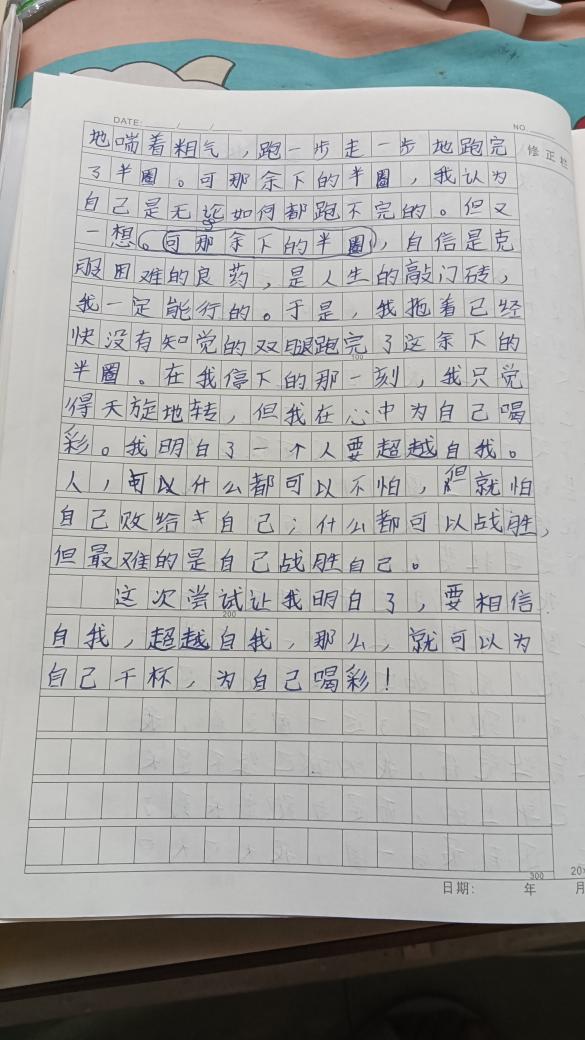 DATE: / /
NO.
修正栏
地喘着粗气，跑一步走一步地跑完
了半圈。可那余下的半圈，我认为
自己是无论如何都跑不完的。但又
一想。可那余下的半圈，自信是克
服困难的良药，是人生的敲门砖，
我一定能行的。于是，我拖着已经
快没有知觉的双腿跑完了这余下的
100
半圈。在我停下的那一刻，我只觉
得天旋地转，但我在心中为自己喝
彩。我明白了一个人要超越自我。
人，可以什么都可以不怕，但就怕
自己败给自己；什么都可以战胜，
但最难的是自己战胜自己。
这次尝试让我明白了，要相信
200
自我，超越自我，那么，就可以为
自己干杯，为自己喝彩！
300
日期： 年 月
20